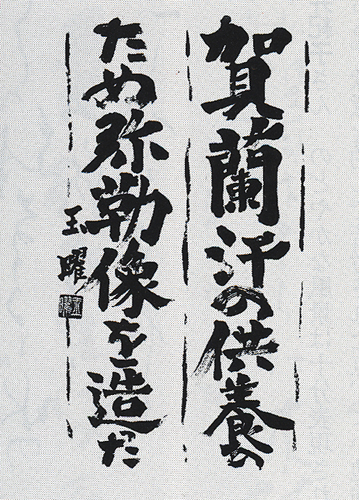 賀蘭汗の供養の
ため弥勒像を造った
玉曜